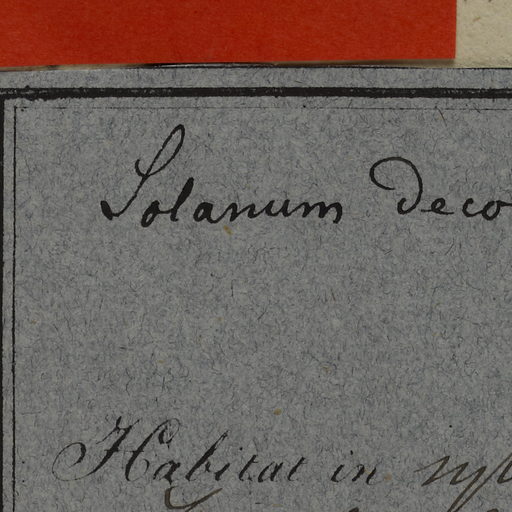 Solanum Deco
Habitat in syl